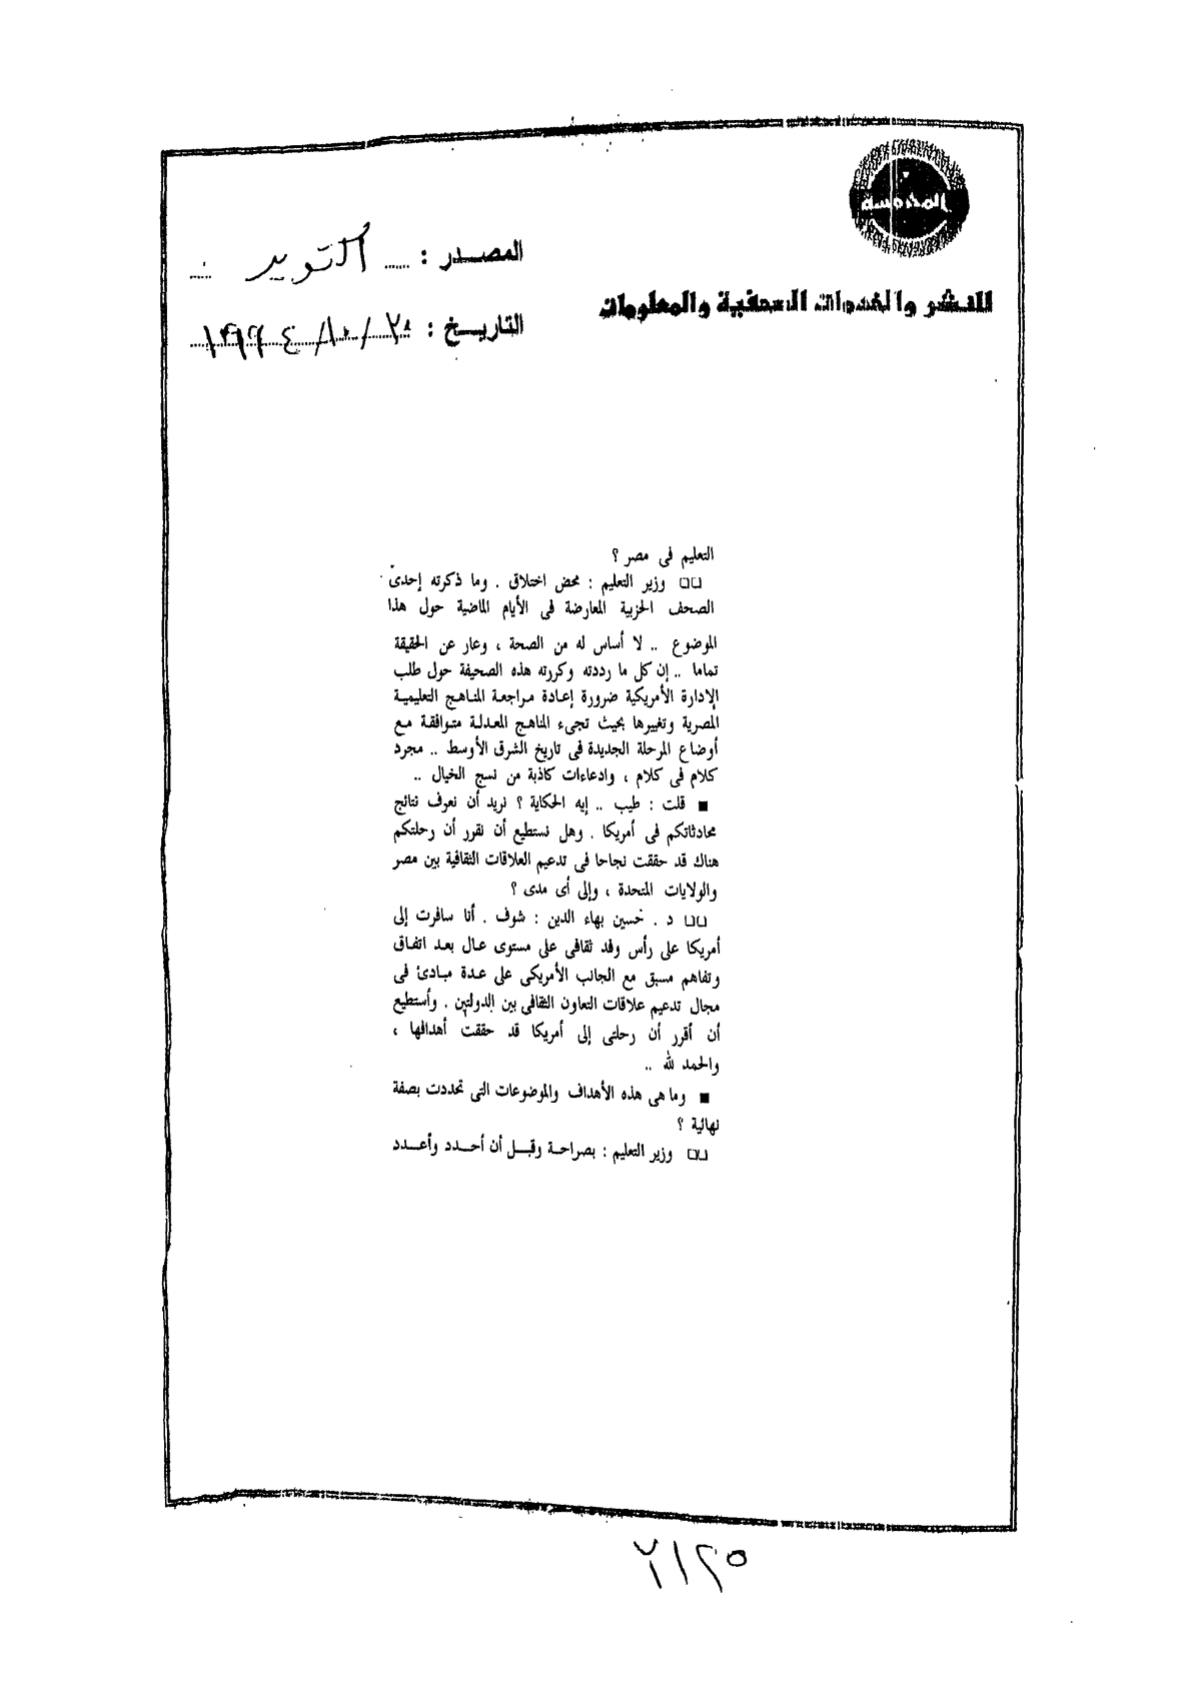 المحروسة
للنشر والخدمات الصحفية والمعلومات
المصدر : أكتوبر
التاريخ : ١٩٩٤/١٠/٢٠
التعليم فى مصر ؟
□□ وزير التعليم : محض اختلاق . وما ذكرته إحدى
الصحف الحزبية المعارضة فى الأيام الماضية حول هذا
الموضوع .. لا أساس له من الصحة ، وعار عن الحقيقة
تماما .. إن كل ما رددته وكررته هذه الصحيفة حول طلب
الإدارة الأمريكية ضرورة إعادة مراجعة المناهج التعليمية
المصرية وتغييرها بحيث تجىء المناهج المعدلة متوافقة مع
أوضاع المرحلة الجديدة فى تاريخ الشرق الأوسط .. مجرد
كلام فى كلام ، وادعاءات كاذبة من نسج الخيال ..
■ قلت : طيب .. إيه الحكاية ؟ نريد أن نعرف نتائج
محادثاتكم فى أمريكا . وهل نستطيع أن نقرر أن رحلتكم
هناك قد حققت نجاحا فى تدعيم العلاقات الثقافية بين مصر
والولايات المتحدة ، وإلى أى مدى ؟
□□ د . حسين بهاء الدين : شوف . أنا سافرت إلى
أمريكا على رأس وفد ثقافى على مستوى عال بعد اتفاق
وتفاهم مسبق مع الجانب الأمريكى على عدة مبادئ فى
مجال تدعيم علاقات التعاون الثقافى بين الدولتين . وأستطيع
أن أقرر أن رحلتى إلى أمريكا قد حققت أهدافها ،
والحمد لله ..
■ وما هى هذه الأهداف والموضوعات التى تحددت بصفة
نهائية ؟
□□ وزير التعليم : بصراحة وقبل أن أحدد وأعدد